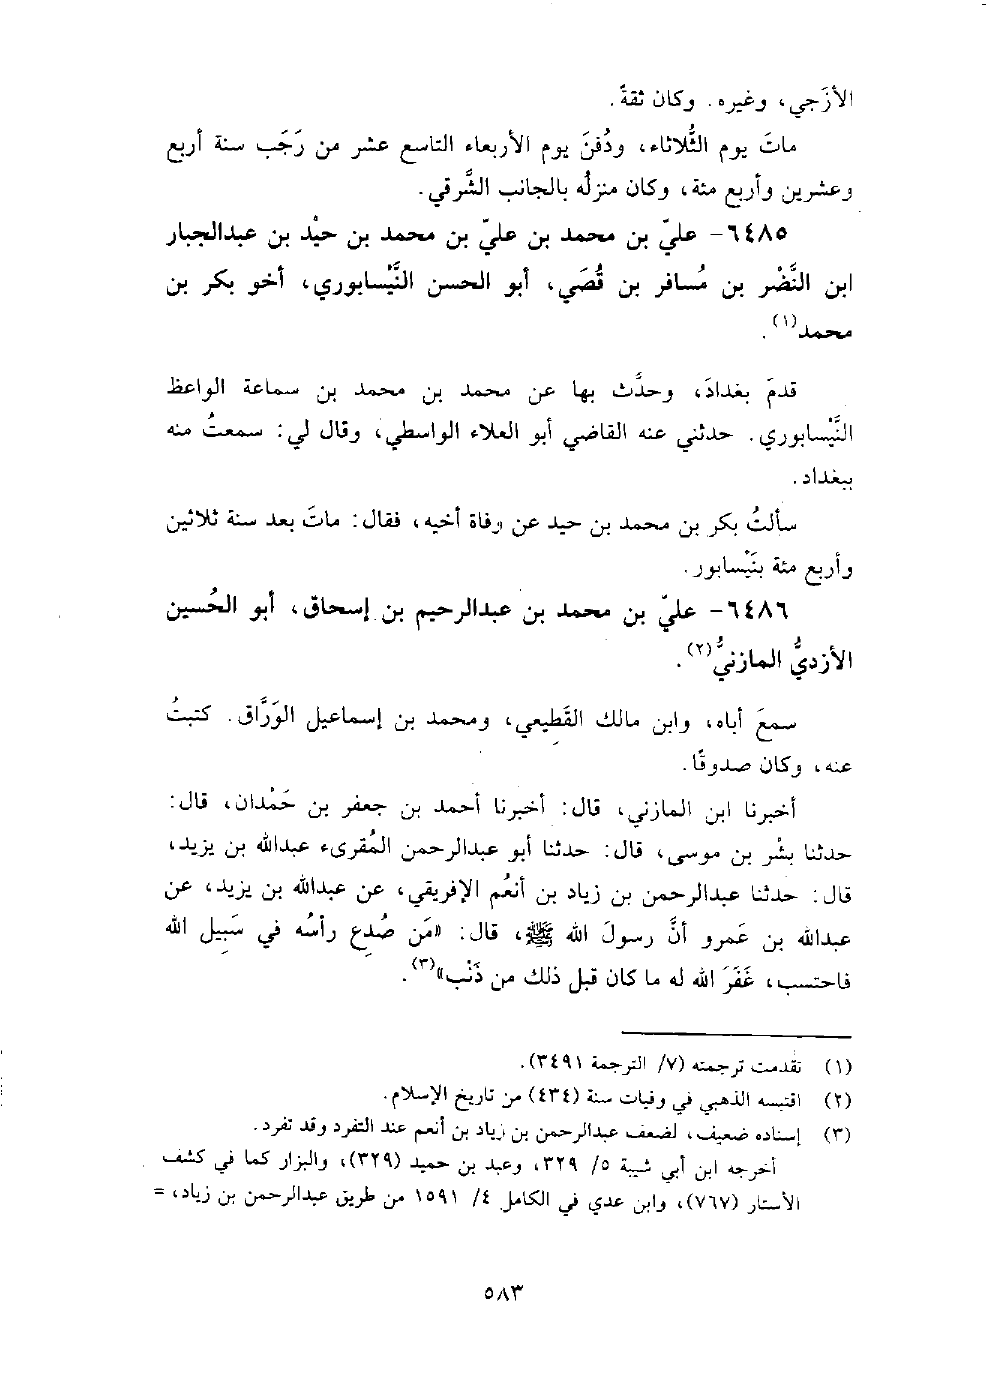 الأزَجي، وغيره. وكان ثقةً.
ماتَ يوم الثُّلاثاء، ودُفنَ يوم الأربعاء التاسع عشر من رَجَب سنة أربع
وعشرين وأربع مئة، وكان منزلُه بالجانب الشَّرقي.
٦٤٨٥- عليّ بن محمد بن عليّ بن محمد بن حيْد بن عبدالجبار
ابن النَّضْر بن مُسافر بن قُصَي، أبو الحسن النَّيْسابوري، أخو بكر بن
محمد(١).
قدمَ بغدادَ، وحدَّث بها عن محمد بن محمد بن سماعة الواعظ
النَّيْسابوري. حدثني عنه القاضي أبو العلاء الواسطي، وقال لي: سمعتُ منه
ببغداد.
سألتُ بكر بن محمد بن حيد عن وفاة أخيه، فقال: ماتَ بعد سنة ثلاثين
وأربع مئة بنَيْسابور.
٦٤٨٦- عليّ بن محمد بن عبدالرحيم بن إسحاق، أبو الحُسين
الأزديُّ المازنيُّ(٢).
سمعَ أباه، وابن مالك القَطِيعي، ومحمد بن إسماعيل الوَرَّاق. كتبتُ
عنه، وكان صدوقًا.
أخبرنا ابن المازني، قال: أخبرنا أحمد بن جعفر بن حَمْدان، قال:
حدثنا بشْر بن موسى، قال: حدثنا أبو عبدالرحمن المُقرىء عبدالله بن يزيد،
قال: حدثنا عبدالرحمن بن زياد بن أنعُم الإفريقي، عن عبدالله بن يزيد، عن
عبدالله بن عَمرو أنَّ رسولَ الله ﷺ، قال: «مَن صُدِع رأسُه في سَبِيل الله
فاحتسب، غَفَرَ الله له ما كان قبل ذلك من ذَنْب»(٣).
(١) تقدمت ترجمته (٧/ الترجمة ٣٤٩١).
(٢) اقتبسه الذهبي في وفيات سنة (٤٣٤) من تاريخ الإسلام.
(٣) إسناده ضعيف، لضعف عبدالرحمن بن زياد بن أنعم عند التفرد وقد تفرد.
أخرجه ابن أبي شيبة ٥/ ٣٢٩، وعبد بن حميد (٣٢٩)، والبزار كما في كشف
الأستار (٧٦٧)، وابن عدي في الكامل ٤/ ١٥٩١ من طريق عبدالرحمن بن زياد، =
٥٨٣